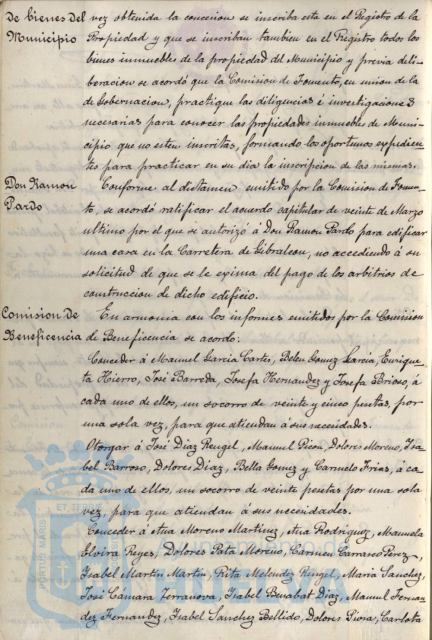 de bienes del vez obtenida la concecion se inscriba esta en el Registro de la
Municipio Propiedad y que se inscriban tambien en el Registro todos los
bienes inmuebles de la propiedad del Municipio y previa deli-
beracion se acordó que la Comision de Fomento, en union de la
de Gobernacion, practique las diligencias é investigaciones
necesarias para conocer las propiedades inmuebles de Muni-
cipio que no esten inscritas, formando los oportunos expedien-
tes para practicar en su dia la inscripcion de las mismas.
Don Ramon Conforme al dictamen emitido por la Comision de Fomen-
Pardo to, se acordó ratificar el acuerdo capitular de veinte de Marzo
ultimo por el que se autorizó á Don Ramon Pardo para edificar
una casa en la Carretera de Gibraleon, no accediendo á su
solicitud de que se le exima del pago de los arbitrios de
construccion de dicho edificio.
Comision de En armonia con los informes emitidos por la Comision
Beneficencia de Beneficencia se acordó:
Conceder á Manuel Garcia Cartes, Belen Gomez Garcia, Enrique-
ta Hierro, José Barreda, Josefa Hernandez y Josefa Brioso, á
cada uno de ellos, un socorro de veinte y cinco pesetas, por
una sola vez, para que atiendan á sus necesidades.
Otorgar á José Diaz Rengel, Manuel Picón, Dolores Moreno, Isa-
bel Barroso, Dolores Diaz, Bella Gomez y Carmelo Frias, á ca
da uno de ellos, un socorro de veinte pesetas por una sola
vez, para que atiendan á sus necesidades.
Conceder á Ana Moreno Martinez, Ana Rodriguez, Manuela
Elvira Reyes, Dolores Rata Moreno, Carmen Carrasco Perez,
Isabel Martin Martin, Rita Melendez Rengel, Maria Sanchez,
José Cámara Terranova, Isabel Diaz, Manuel Fernan
dez Fernandez, Isabel Sanchez Bellido, Dolores Carlota
PORTUS MARIS